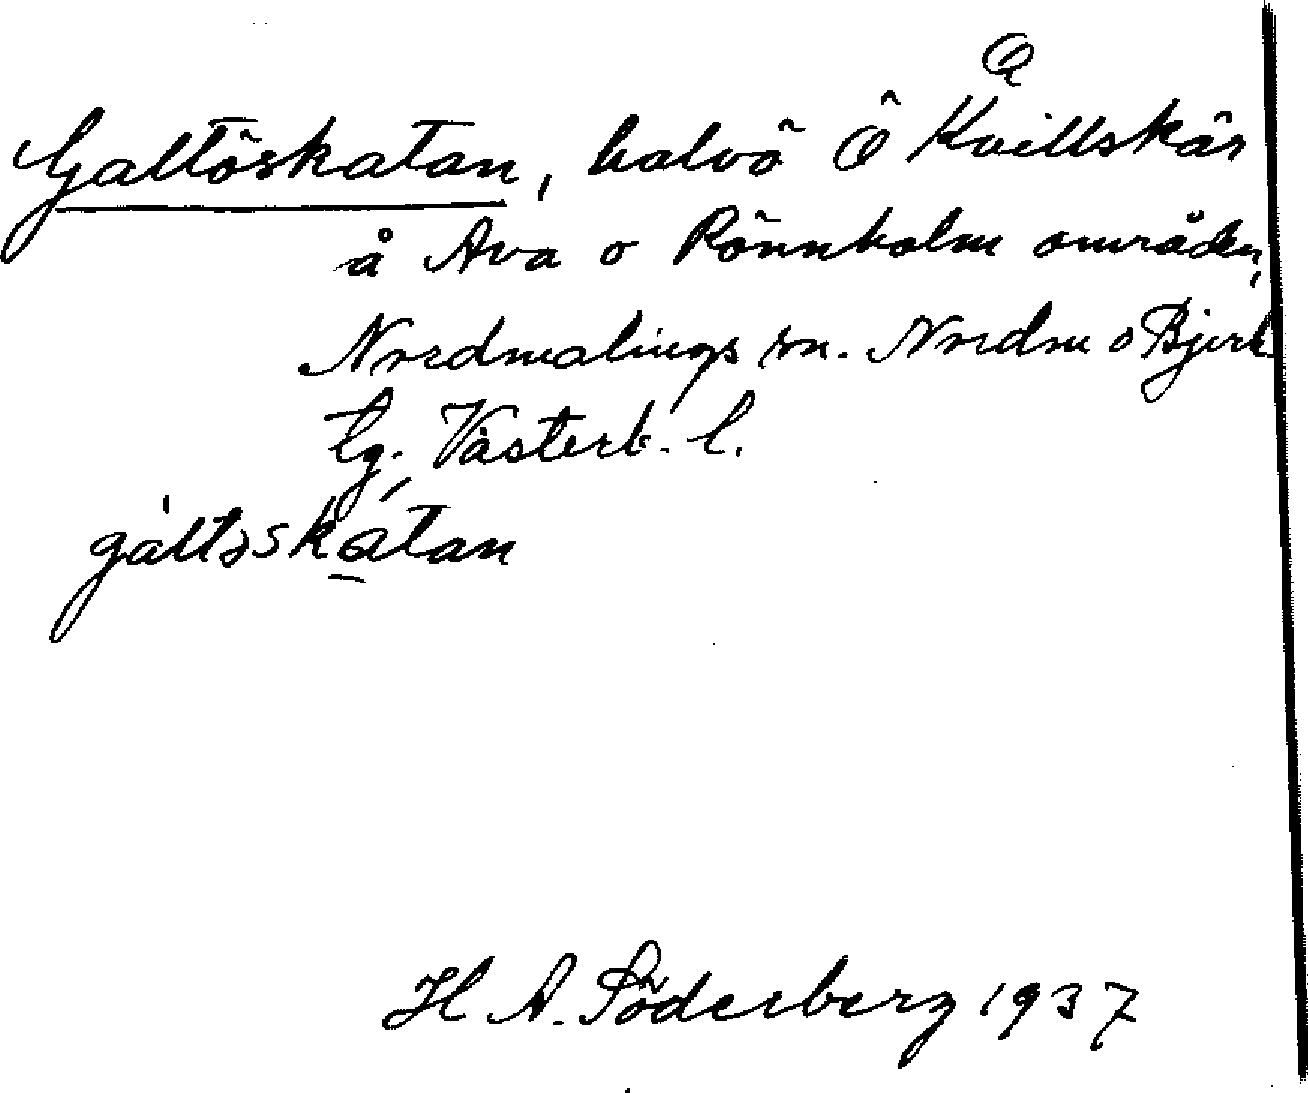 Q
Galtöskatan, halvö Ö Kvillskär
å Ava o Rönnholm områden,
Nordmalings sn. Nordm o Bjurh
tg. Västerb. l.
gàltɔskátan
H A. Söderberg 1937